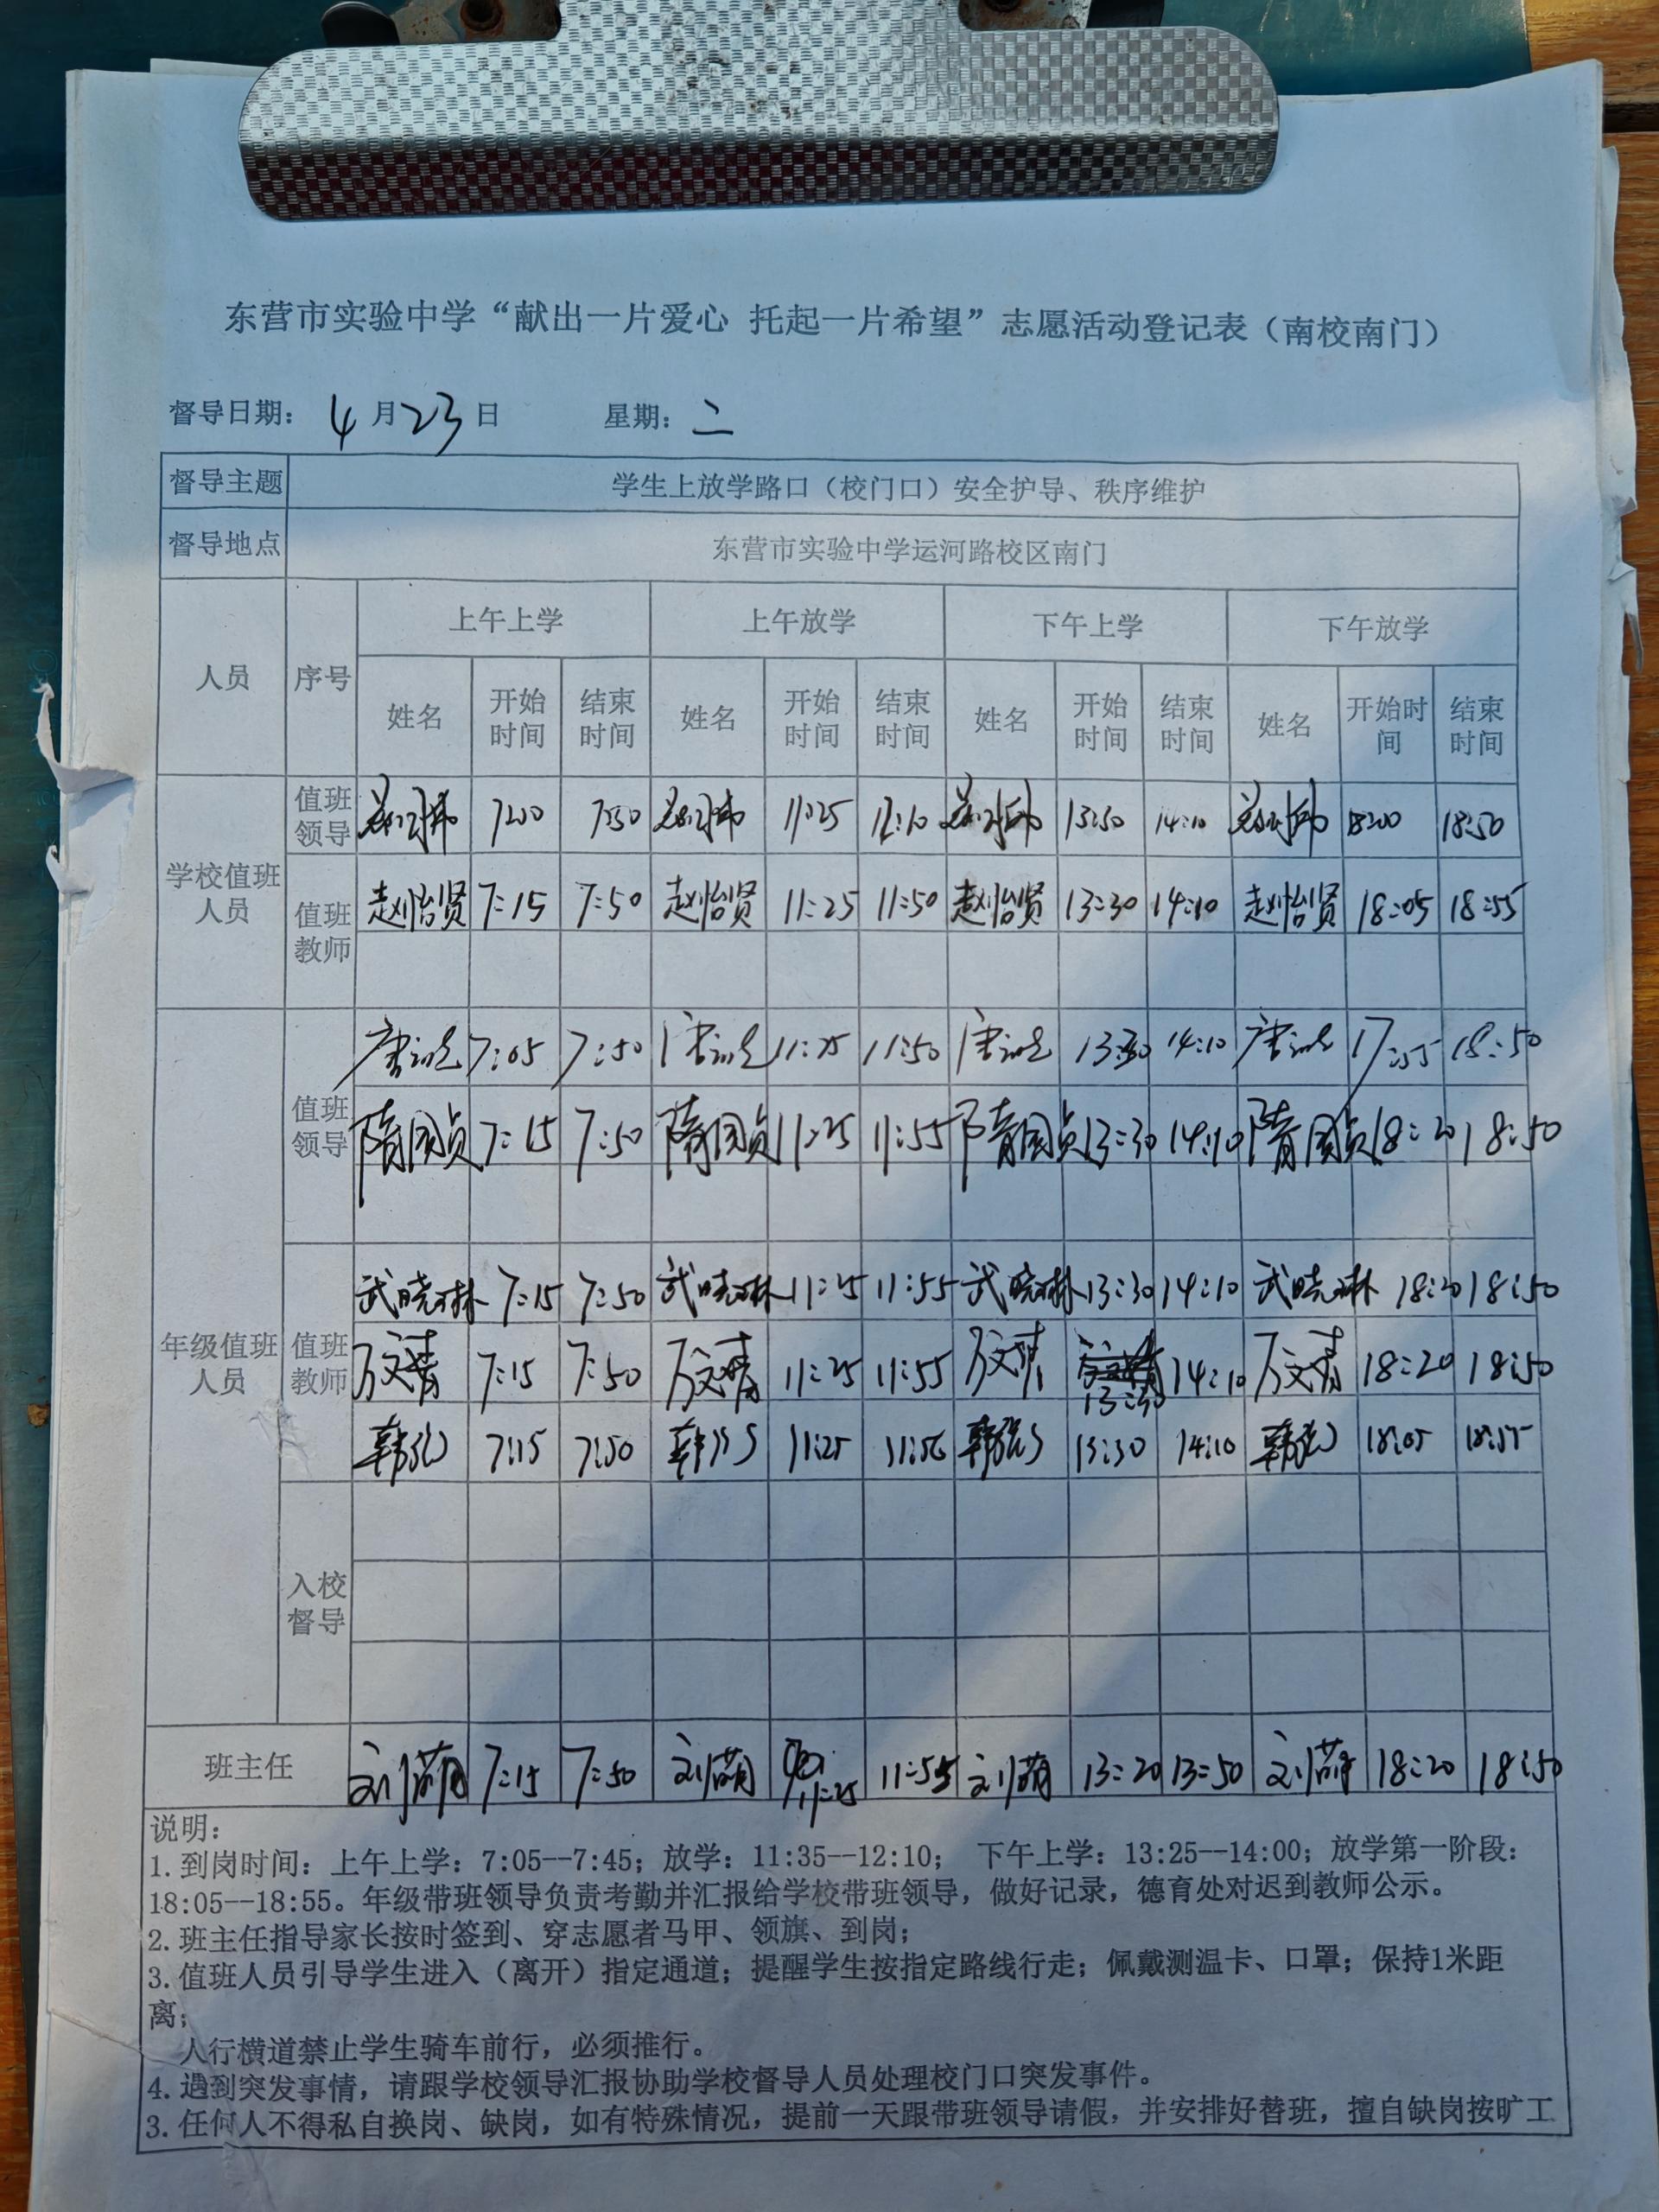 东营市实验中学“献出一片爱心 托起一片希望”志愿活动登记表（南校南门）
督导日期： 4月23日 星期：二
督导主题 学生上放学路口（校门口）安全护导、秩序维护
督导地点 东营市实验中学运河路校区南门
人员 序号 上午上学 上午放学 下午上学 下午放学
姓名 开始时间 结束时间 姓名 开始时间 结束时间 姓名 开始时间 结束时间 姓名 开始时间 结束时间
学校值班人员
值班领导 7:00 7:50 11:25 12:10 13:30 14:10 18:00 18:50
值班教师 赵怡贤 7:15 7:50 赵怡贤 11:25 11:50 赵怡贤 13:30 14:10 赵怡贤 18:05 18:55
年级值班人员
值班领导 7:05 7:50 11:25 11:50 13:30 14:10 17:55 18:50
隋国贞 7:15 7:50 隋国贞 11:25 11:55 隋国贞 13:30 14:10 隋国贞 18:20 18:50
值班教师 武晓琳 7:15 7:50 武晓琳 11:25 11:55 武晓琳 13:30 14:10 武晓琳 18:20 18:50
万文青 7:15 7:50 万文青 11:25 11:55 万文青 13:30 14:10 万文青 18:20 18:50
7:15 7:50 11:25 13:30 14:10 18:05 18:55
入校督导
班主任 刘萌 7:15 7:50 刘萌 11:25 11:55 刘萌 13:20 13:50 刘萌 18:20 18:50
说明：
1. 到岗时间：上午上学：7:05--7:45；放学：11:35--12:10； 下午上学：13:25--14:00；放学第一阶段：
18:05--18:55。年级带班领导负责考勤并汇报给学校带班领导，做好记录，德育处对迟到教师公示。
2. 班主任指导家长按时签到、穿志愿者马甲、领旗、到岗；
3. 值班人员引导学生进入（离开）指定通道；提醒学生按指定路线行走；佩戴测温卡、口罩；保持1米距
离；
人行横道禁止学生骑车前行，必须推行。
4. 遇到突发事情，请跟学校领导汇报协助学校督导人员处理校门口突发事件。
3. 任何人不得私自换岗、缺岗，如有特殊情况，提前一天跟带班领导请假，并安排好替班，擅自缺岗按旷工